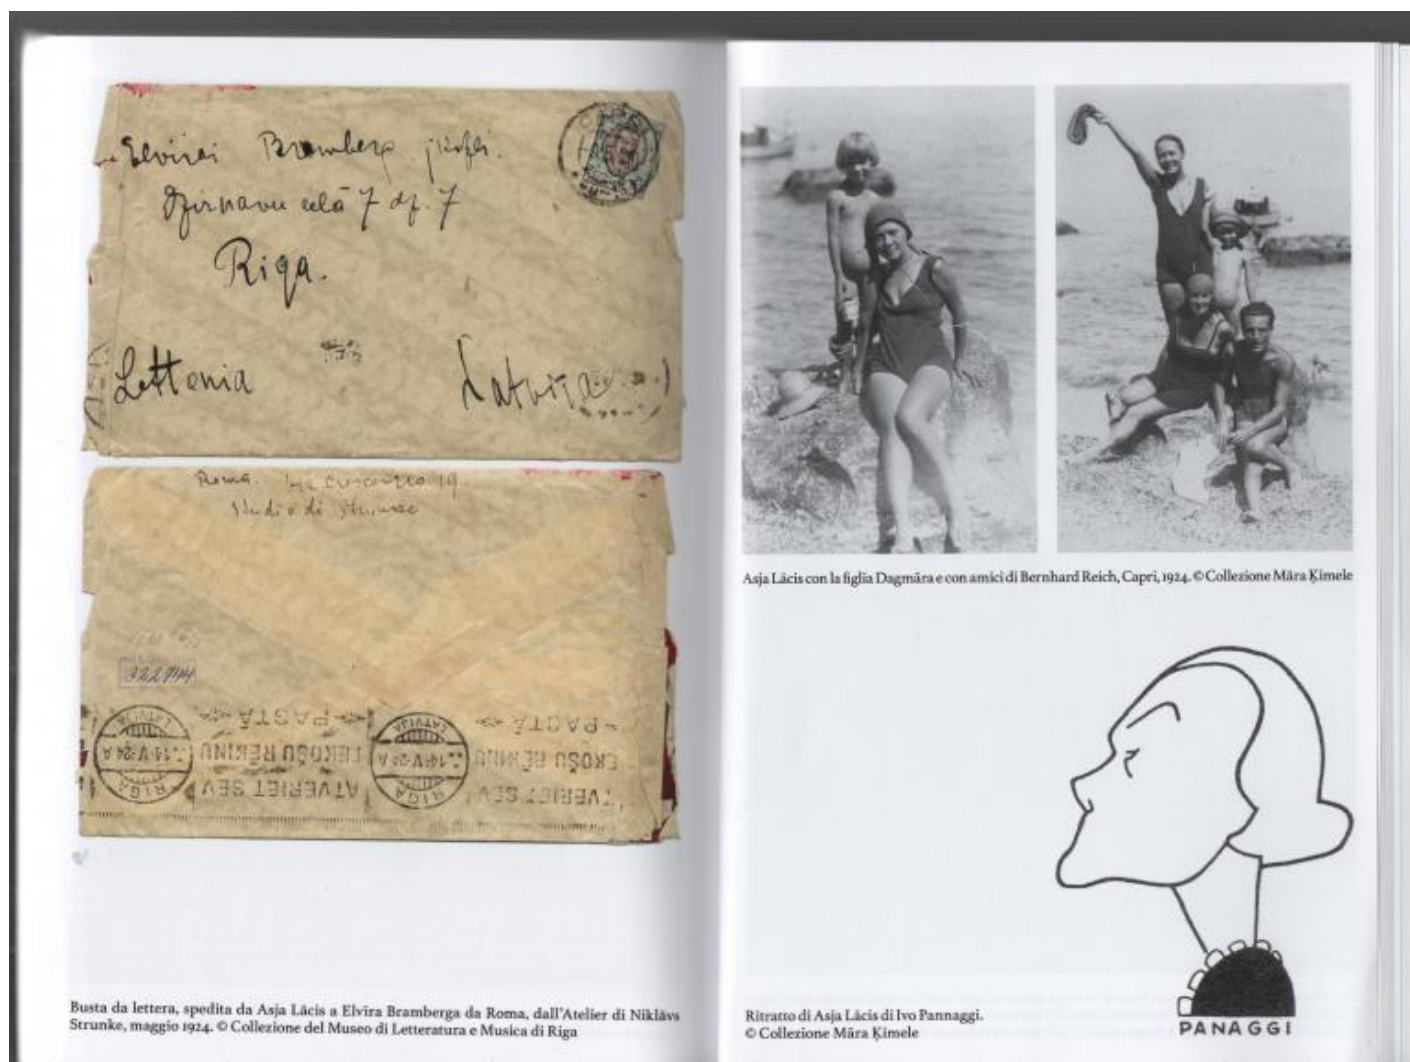 Elvirai Bramberg jkdzei.
Dzirnavu ielā 7 dz. 7
Riga.
Lettonia
Latvija
Roma.
Studio di Strunke
322744
RIGA
14·V·24 A
LATVIJA
ATVERIET SEV
TEKOŠU RĒĶINU
PASTĀ
RIGA
14·V·24 A
LATVIJA
TVERIET SEV
EKOŠU RĒĶINU
PASTĀ
Busta da lettera, spedita da Asja Lācis a Elvīra Bramberga da Roma, dall'Atelier di Niklāvs
Strunke, maggio 1924. © Collezione del Museo di Letteratura e Musica di Riga
Asja Lācis con la figlia Dagmāra e con amici di Bernhard Reich, Capri, 1924. © Collezione Māra Ķimele
Ritratto di Asja Lācis di Ivo Pannaggi.
© Collezione Māra Ķimele
PANAGGI